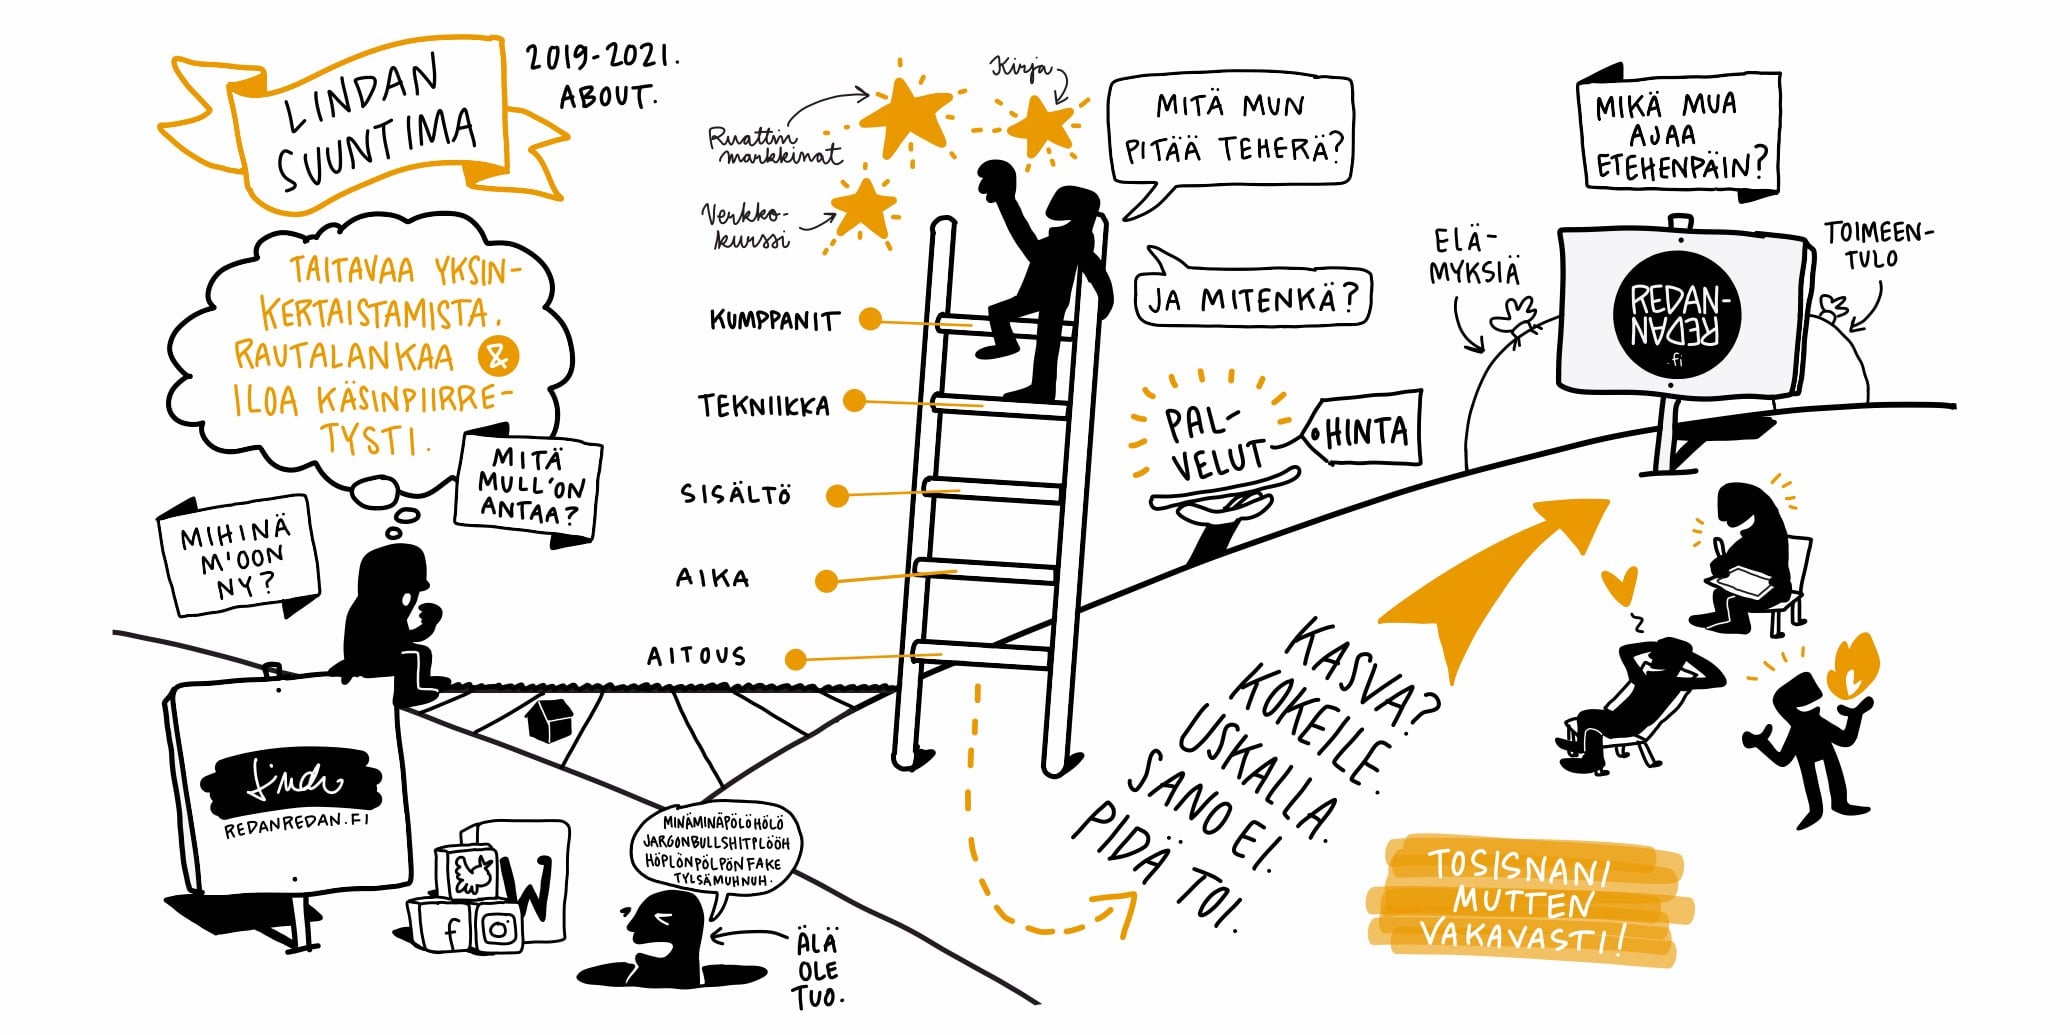 LINDAN
SUUNTIMA
2019-2021.
ABOUT.
TAITAVAA YKSIN-
KERTAISTAMISTA.
RAUTALANKAA &
ILOA KÄSINPIIRRE-
TYSTI.
MITÄ
MULL'ON
ANTAA?
MIHINÄ
M'OON
NY?
Linda
REDANREDAN.FI
f
W
MINÄMINÄPÖLÖHÖLÖ
JARGONBULLSHITPLÖÖH
HÖPLÖNPÖLPÖNFAKE
TYLSÄMUHNUH.
ÄLÄ
OLE
TUO.
Ruattin
markkinat
Kirja
Verkko-
kurssi
KUMPPANIT
TEKNIIKKA
SISÄLTÖ
AIKA
AITOUS
MITÄ MUN
PITÄÄ TEHERÄ?
JA MITENKÄ?
PAL-
VELUT
HINTA
MIKÄ MUA
AJAA
ETEHENPÄIN?
ELÄ-
MYKSIÄ
TOIMEEN-
TULO
REDAN-
REDAN
.fi
KASVA?
KOKEILE.
USKALLA.
SANO EI.
PIDÄ TOI.
z
TOSISNANI
MUTTEN
VAKAVASTI!